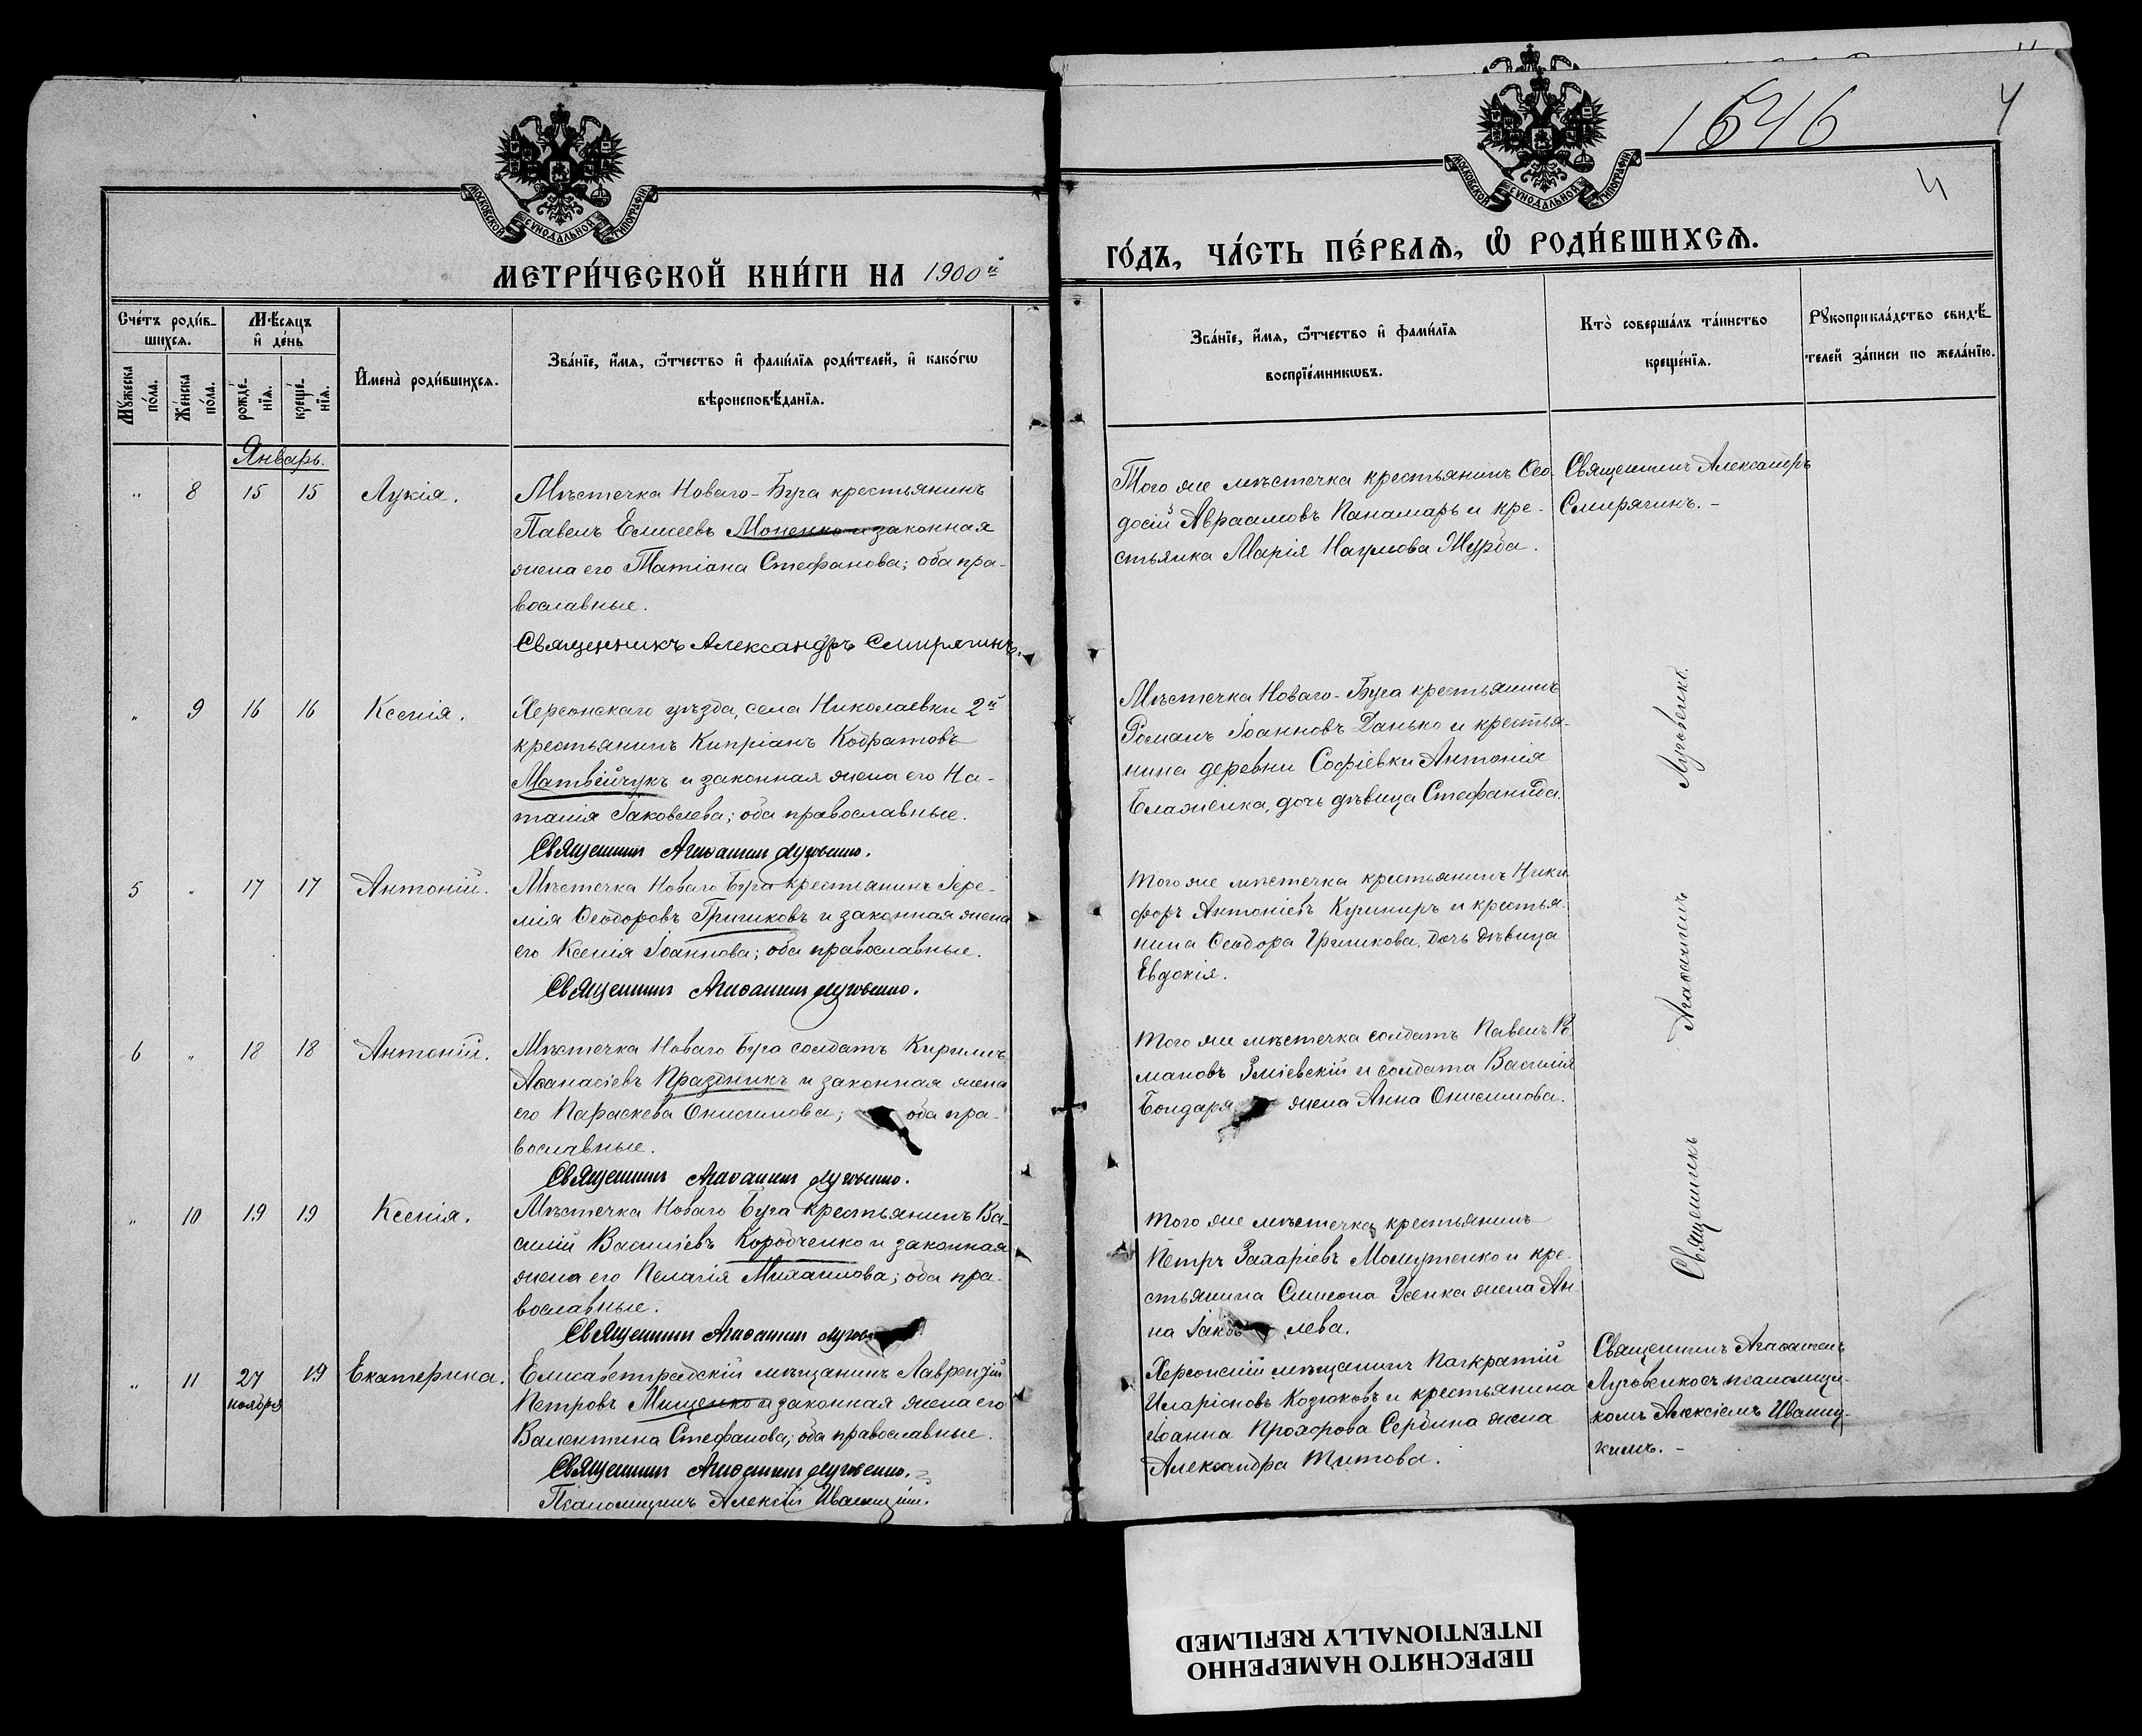 1646
4
4
МОСКОВСКОЙ СѴНОДАЛЬНОЙ ТИПОГРАФІИ
МОСКОВСКОЙ СѴНОДАЛЬНОЙ ТИПОГРАФІИ
МЕТРИ́ЧЕСКОЙ КНИ́ГИ НА 1900й
ГО́ДЪ, ЧА́СТЬ ПЕ́РВАѦ, Ѡ҆ РОДИ́ВШИХСѦ.
Сче́тъ роди́в-
шихсѧ.
Мꙋ́жеска по́ла.
Же́нска по́ла.
Мѣ́сѧцъ
и҆ де́нь
рожде́-
нїѧ.
креще́-
нїѧ.
И҆мена̀ роди́вшихсѧ.
Зва́нїе, и҆́мѧ, ѻ҆́тчество и҆ фамı́лїѧ роди́телей, и҆ како́гѡ
вѣроисповѣ́данїѧ.
Зва́нїе, и҆́мѧ, ѻ҆́тчество и҆ фамı́лїѧ
воспрїе́мникѡвъ.
Кто̀ соверша́лъ та́инство
креще́нїѧ.
Рꙋкоприкла́дство свидѣ́-
телей за́писи по жела́нїю.
Январь.
" 8 15 15 Лукія.
Мѣстечка Новаго-Буга крестьянинъ
Павелъ Елисеевъ Моненко и законная
жена его Татіана Стефанова; оба пра-
вославные.
Священникъ Александръ Смирягинъ.
Того же мѣстечка крестьянинъ Ѳео-
досій Авраамовъ Панамарь и кре-
стьянка Марія Наумова Журба.
Священникъ Александръ
Смирягинъ.-
" 9 16 16 Ксенія.
Херсонскаго уѣзда, села Николаевки 2й
крестьянинъ Кипріанъ Кодратовъ
Матвійчукъ и законная жена его На-
талія Іаковлева; оба православные.
Священникъ Агаѳангелъ Луговенко.
Мѣстечка Новаго-Буга крестьянинъ
Романъ Іоанновъ Данько и крестья-
нина деревни Софіевки Антонія
Блаженка, дочь дѣвица Стефанида.
5 " 17 17 Антоній.
Мѣстечка Новаго Буга крестьянинъ Іере-
мія Ѳеодоровъ Гричиковъ и законная жена
его Ксенія Іоаннова; оба православные.
Священникъ Агаѳангелъ Луговенко.
Того же мѣстечка крестьянинъ Ники
форъ Антоніевъ Кушниръ и крестья-
нина Ѳеодора Гричикова, дочь дѣвица
Евдокія.
6 " 18 18 Антоній.
Мѣстечка Новаго Буга солдатъ Кириллъ
Аѳанасіевъ Праздникъ и законная жена
его Параскева Онисимова; оба пра-
вославные.
Священникъ Агаѳангелъ Луговенко.
Того же мѣстечка солдатъ Павелъ Ро
мановъ Зміевскій и солдата Василія
Бондаря жена Анна Онисимова.
" 10 19 19 Ксенія.
Мѣстечка Новаго Буга крестьянинъ Ва-
силій Василіевъ Коробченко и законная
жена его Пелагія Михаилова; оба пра-
вославные.
Священникъ Агаѳангелъ
Того же мѣстечка крестьянинъ
Петръ Захаріевъ и кре-
стьянина Симеона Усенка жена Ан-
на Іаковлева.
Священникъ Агаѳангелъ Луговенко.
" 11 27 19 Екатерина.
ноября
Елисаветградскій мѣщанинъ Лаврентій
Петровъ Мищенко и законная жена его
Валентина Стефанова; оба православные.
Священникъ Агаѳангелъ Луговенко.
Псаломщикъ Алексій Иваницкій.
Херсонскій мѣщанинъ Панкратій
Иларіоновъ Козюковъ и крестьянина
Іоанна Прохорова Сербина жена
Александра Титова.
Священникъ Агаѳангелъ
Луговенко съ псаломщи-
комъ Алексіемъ Иваниц-
кимъ.-
ПЕРЕСНЯТО НАМЕРЕННО
INTENTIONALLY REFILMED